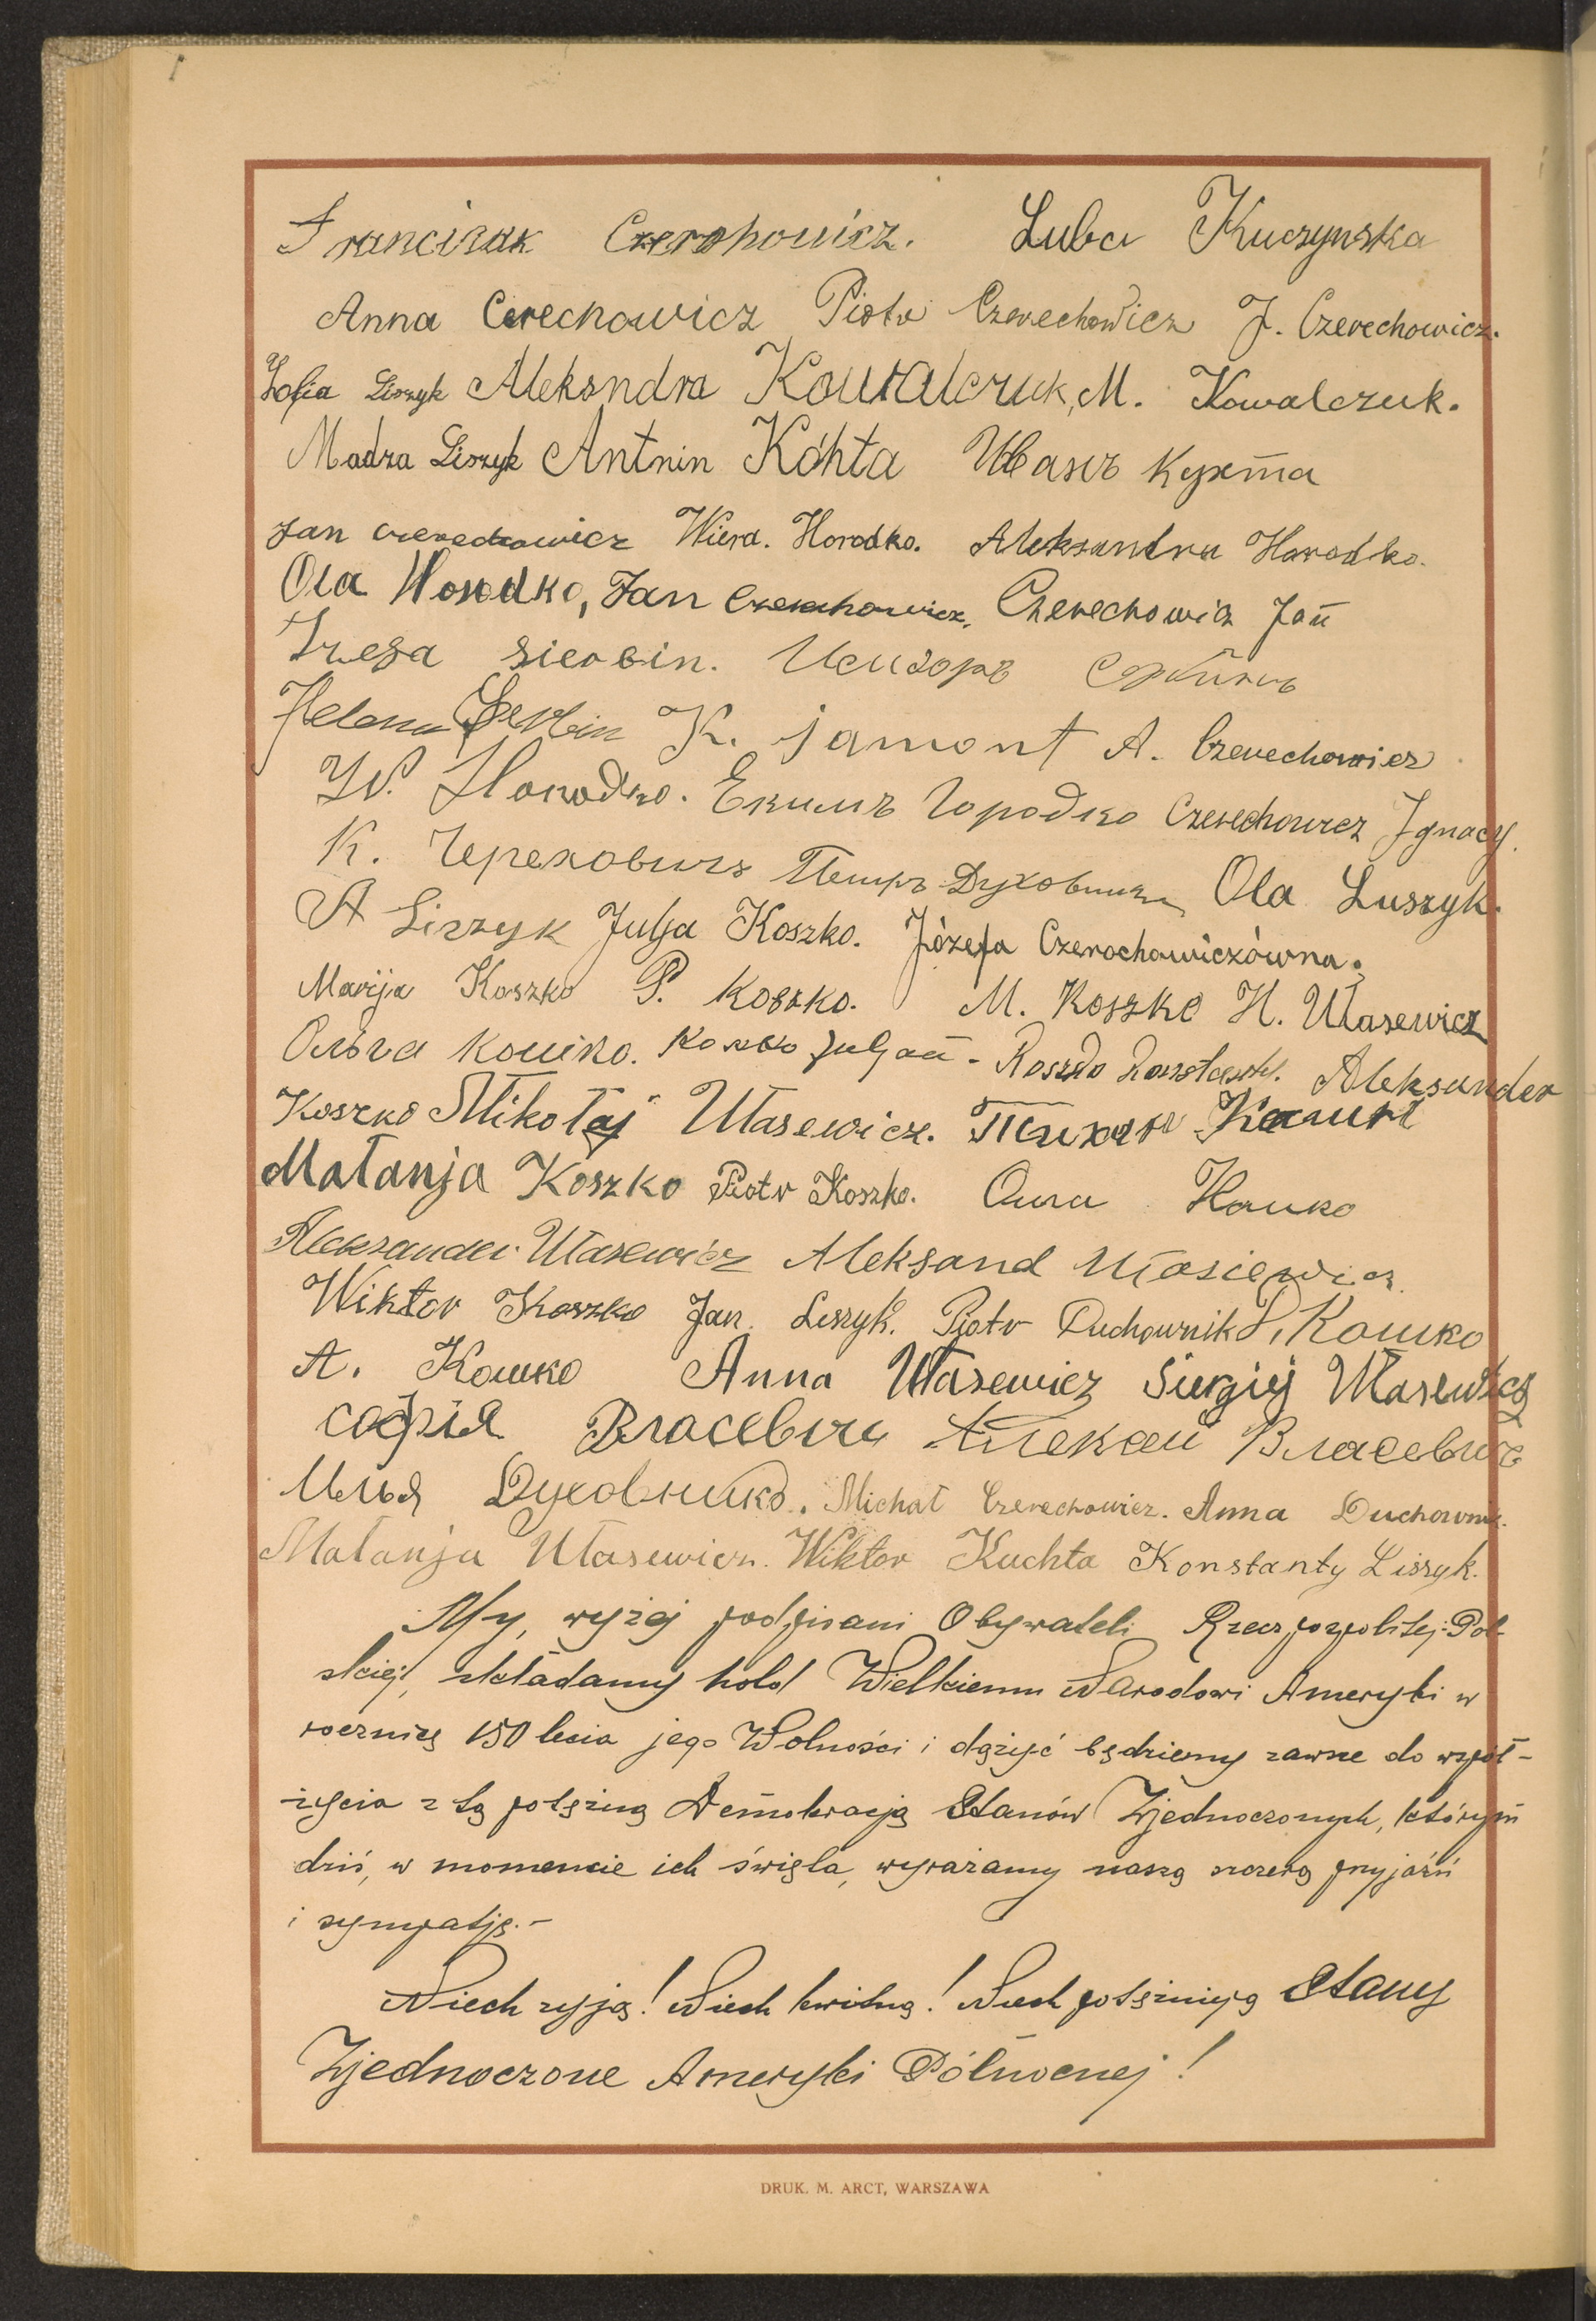 Franciszak Czerohowicz. Luba Kuczynska
Anna Cerechowicz Piotr Czerechowicz J. Czerechowicz.
Zofia Liszyk Aleksndra Kowalczuk, M. Kowalczuk.
Madza Liszyk Antnin Kóhta Кухта
Jan Czerechowicz Wiera. Horodko. Aleksandra Horodko.
Ola Horodko, Jan Czerechowicz, Czerechowicz Jan
Sierbin. Исидоръ
Helena Serbin K. jamont A. Czerechowicz
W. Horodko. Екимъ Городко Czerechowicz Ignacy.
К. Череховичъ Петръ Духовникъ Ola Luszyk.
A Liszyk Julja Koszko. Józefa Czerochowiczówna.
Marija Koszko P. Koszko. M. Koszko H. Własewicz
Ольга Кошко. Koszko Juljan - Koszko Aleksander
Koszko Mikołaj Własewicz. Тихон
Małanja Koszko Piotr Koszko. Кошко
Aleksander Własewicz Aleksand Własiewicz
Wiktor Koszko Jan Leszyk. Piotr Duchownik Кошко
А. Кошко Anna Własewicz Siergiej Własewicz
софія Власевичъ Алексей Власевичъ
Илья Духовникъ. Michał Czerechowicz. Anna Duchownik.
Małanja Własewicz. Wiktor Kuchta Konstanty Liszyk.
My, wyżej podpisani Obywateli Rzeczpospolitej Pol-
skiej, składamy hołd Wielkiemu Narodowi Ameryki w
rocznicę 150 lecia jego Wolności i dążyć będziemy zawsze do współ-
życia z tą potężną Demokracją Stanów Zjednoczonych, którym
dziś, w momencie ich święta, wyrażamy naszą szczerą przyjaźń
i sympatję.-
Niech żyją! Niech kwitną! Niech potężnieją Stany
Zjednoczone Ameryki Północnej!
DRUK. M. ARCT, WARSZAWA